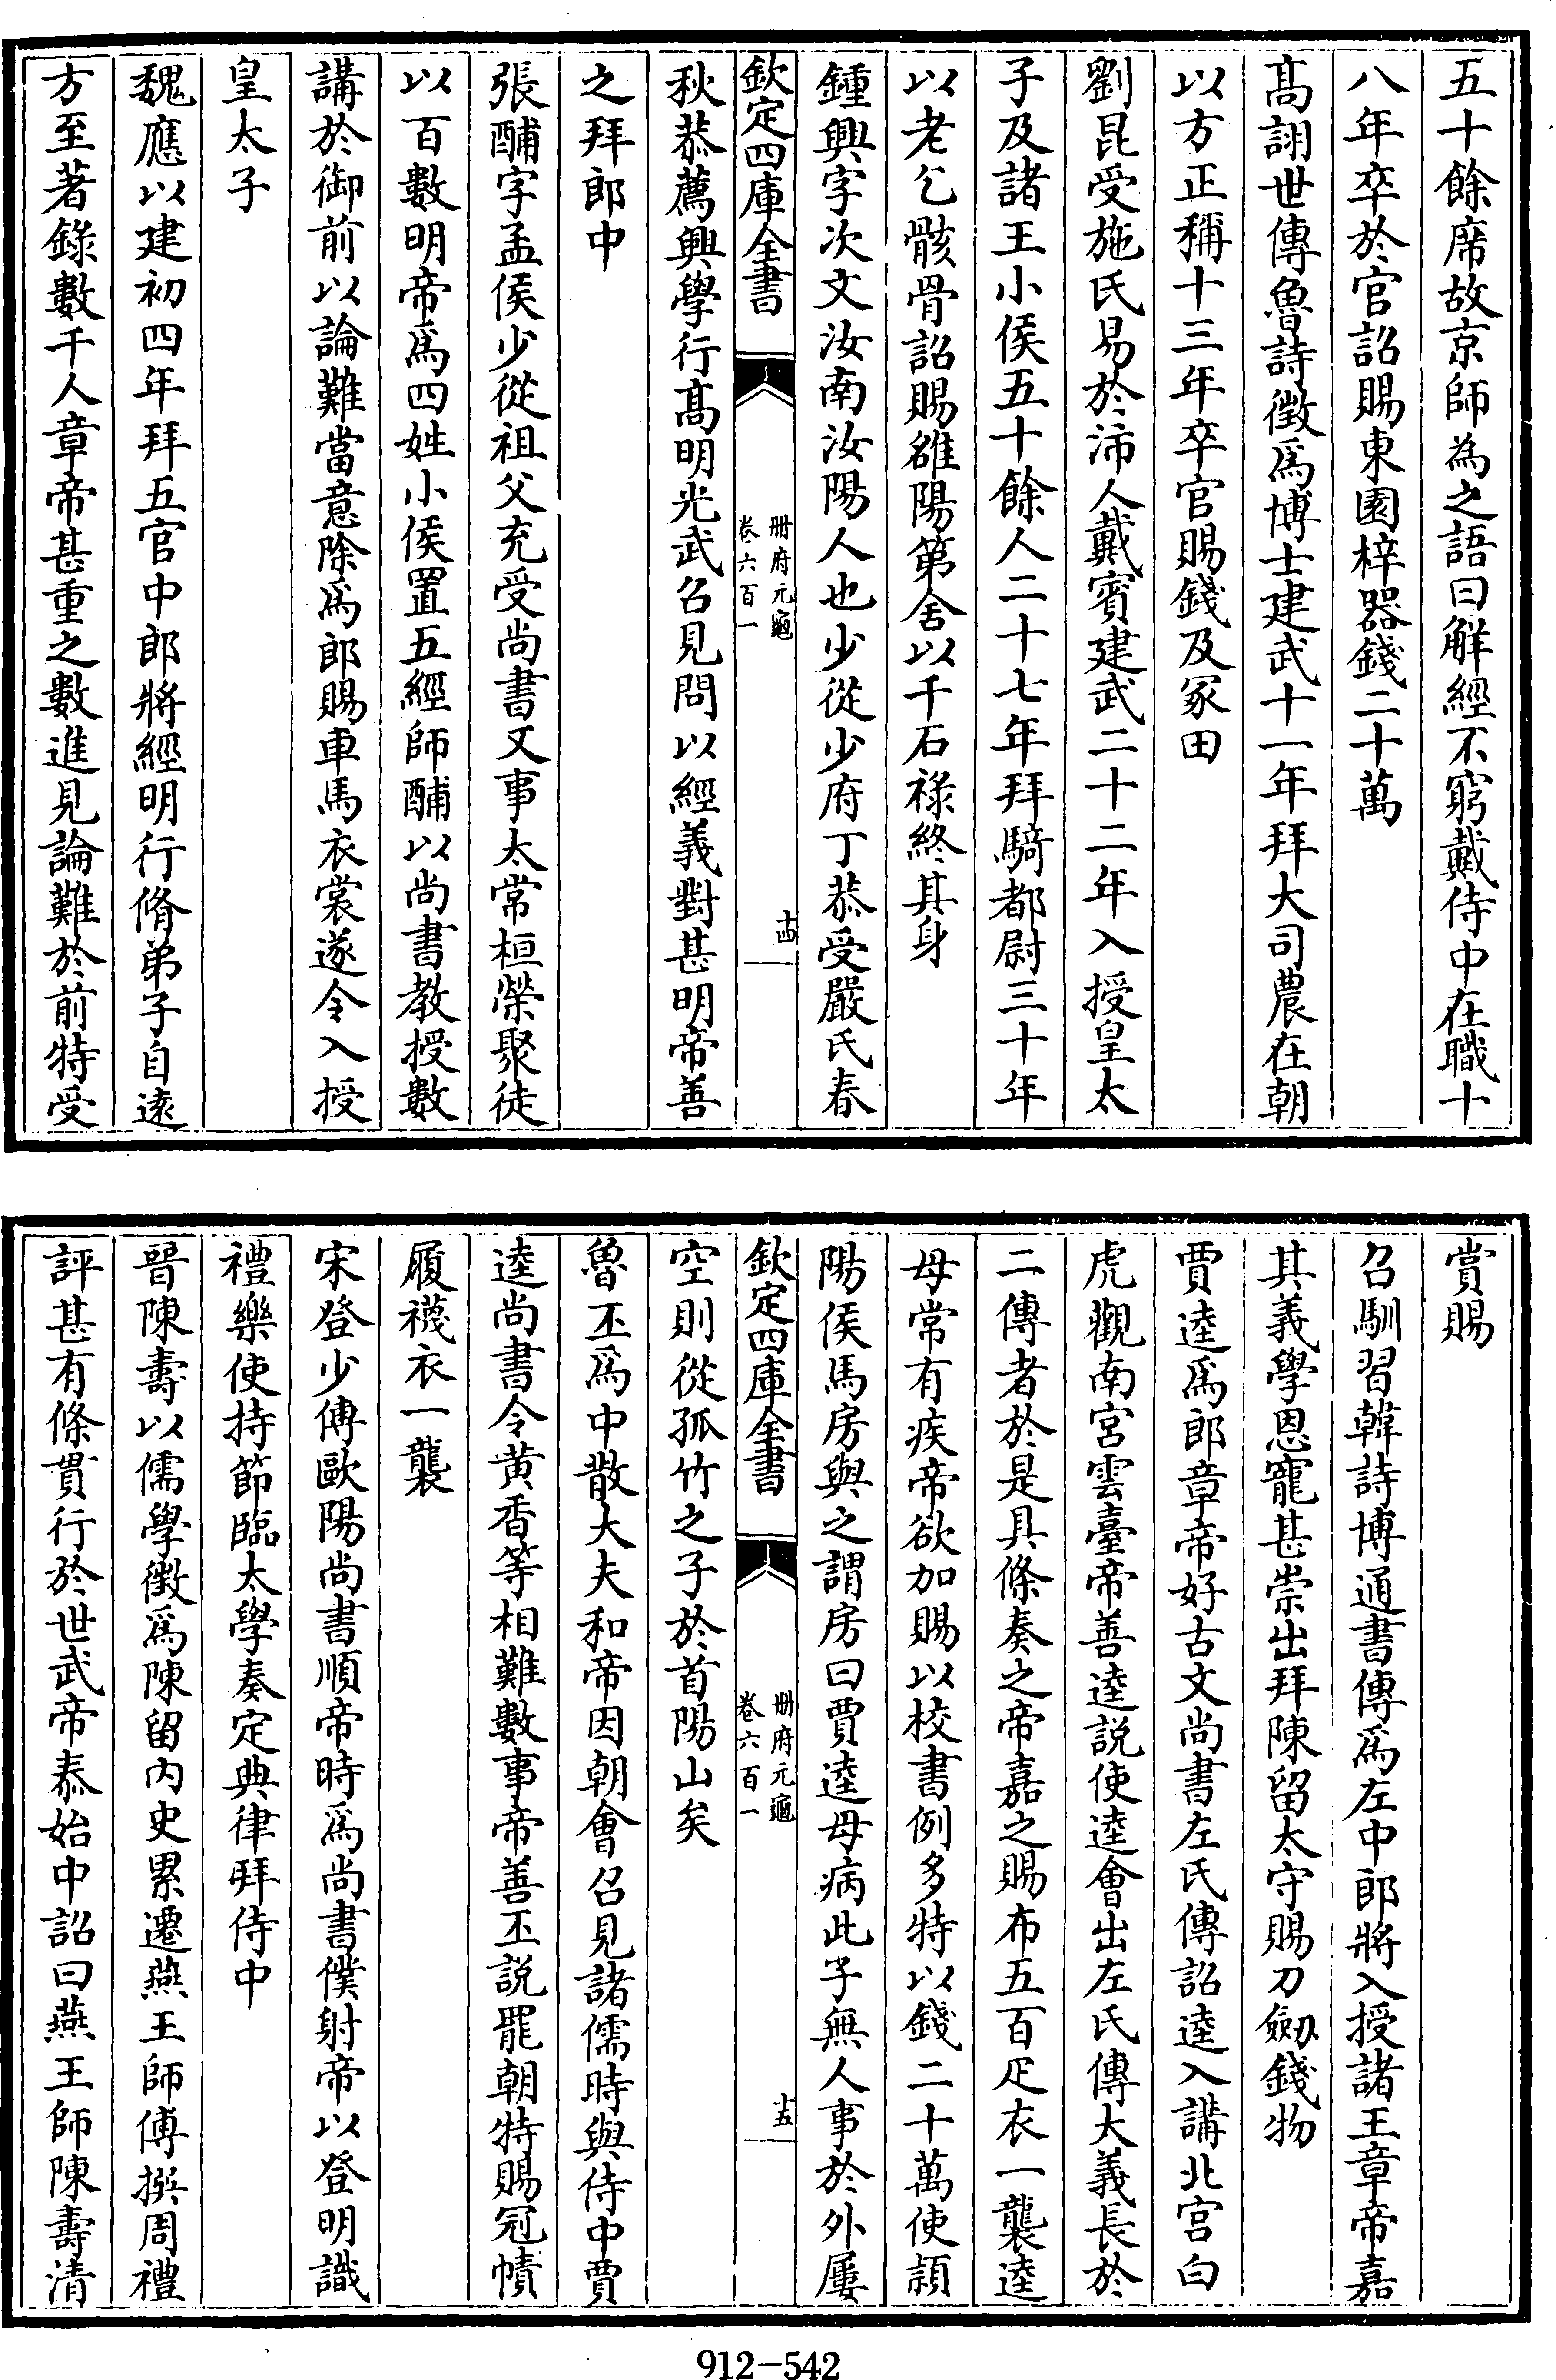 五十餘席故京師為之語曰解經不窮戴侍中在職十
八年卒於官詔賜東園梓器錢二十萬
髙詡世傳魯詩徵爲博士建武十一年拜大司農在朝
以方正稱十三年卒官賜錢及冢田
劉昆受施氏易於沛人戴賓建武二十二年入授皇太
子及諸王小侯五十餘人二十七年拜騎都尉三十年
以老乞骸骨詔賜雒陽第舍以千石祿終其身
鍾興字次文汝南汝陽人也少從少府丁恭受嚴氏春
欽定四庫全書
冊府元龜
卷六百一
十四
秋恭薦興學行髙明光武召見問以經義對甚明帝善
之拜郎中
張酺字孟侯少從祖父充受尚書又事太常桓榮聚徒
以百數明帝爲四姓小侯置五經師酺以尚書教授數
講於御前以論難當意除爲郎賜車馬衣裳遂令入授
皇太子
魏應以建初四年拜五官中郎將經明行脩弟子自遠
方至著錄數千人章帝甚重之數進見論難於前特受
賞賜
召馴習韓詩博通書傳爲左中郎將入授諸王章帝嘉
其義學恩寵甚崇出拜陳留太守賜刀劒錢物
賈逵爲郎章帝好古文尚書左氏傳詔逵入講北宮白
虎觀南宮雲臺帝善逵説使逵會出左氏傳大義長於
二傳者於是具條奏之帝嘉之賜布五百疋衣一襲逵
母常有疾帝欲加賜以校書例多特以錢二十萬使潁
陽侯馬房與之謂房曰賈逵母病此子無人事於外屢
欽定四庫全書
冊府元龜
卷六百一
十五
空則從孤竹之子於首陽山矣
魯丕爲中散大夫和帝因朝會召見諸儒時與侍中賈
逵尚書令黄香等相難數事帝善丕説罷朝特賜冠幘
履襪衣一襲
宋登少傅歐陽尚書順帝時爲尚書僕射帝以登明識
禮樂使持節臨太學奏定典律拜侍中
晉陳壽以儒學徵爲陳留内史累遷燕王師傅撰周禮
評甚有條貫行於世武帝泰始中詔曰燕王師陳壽清
912-542